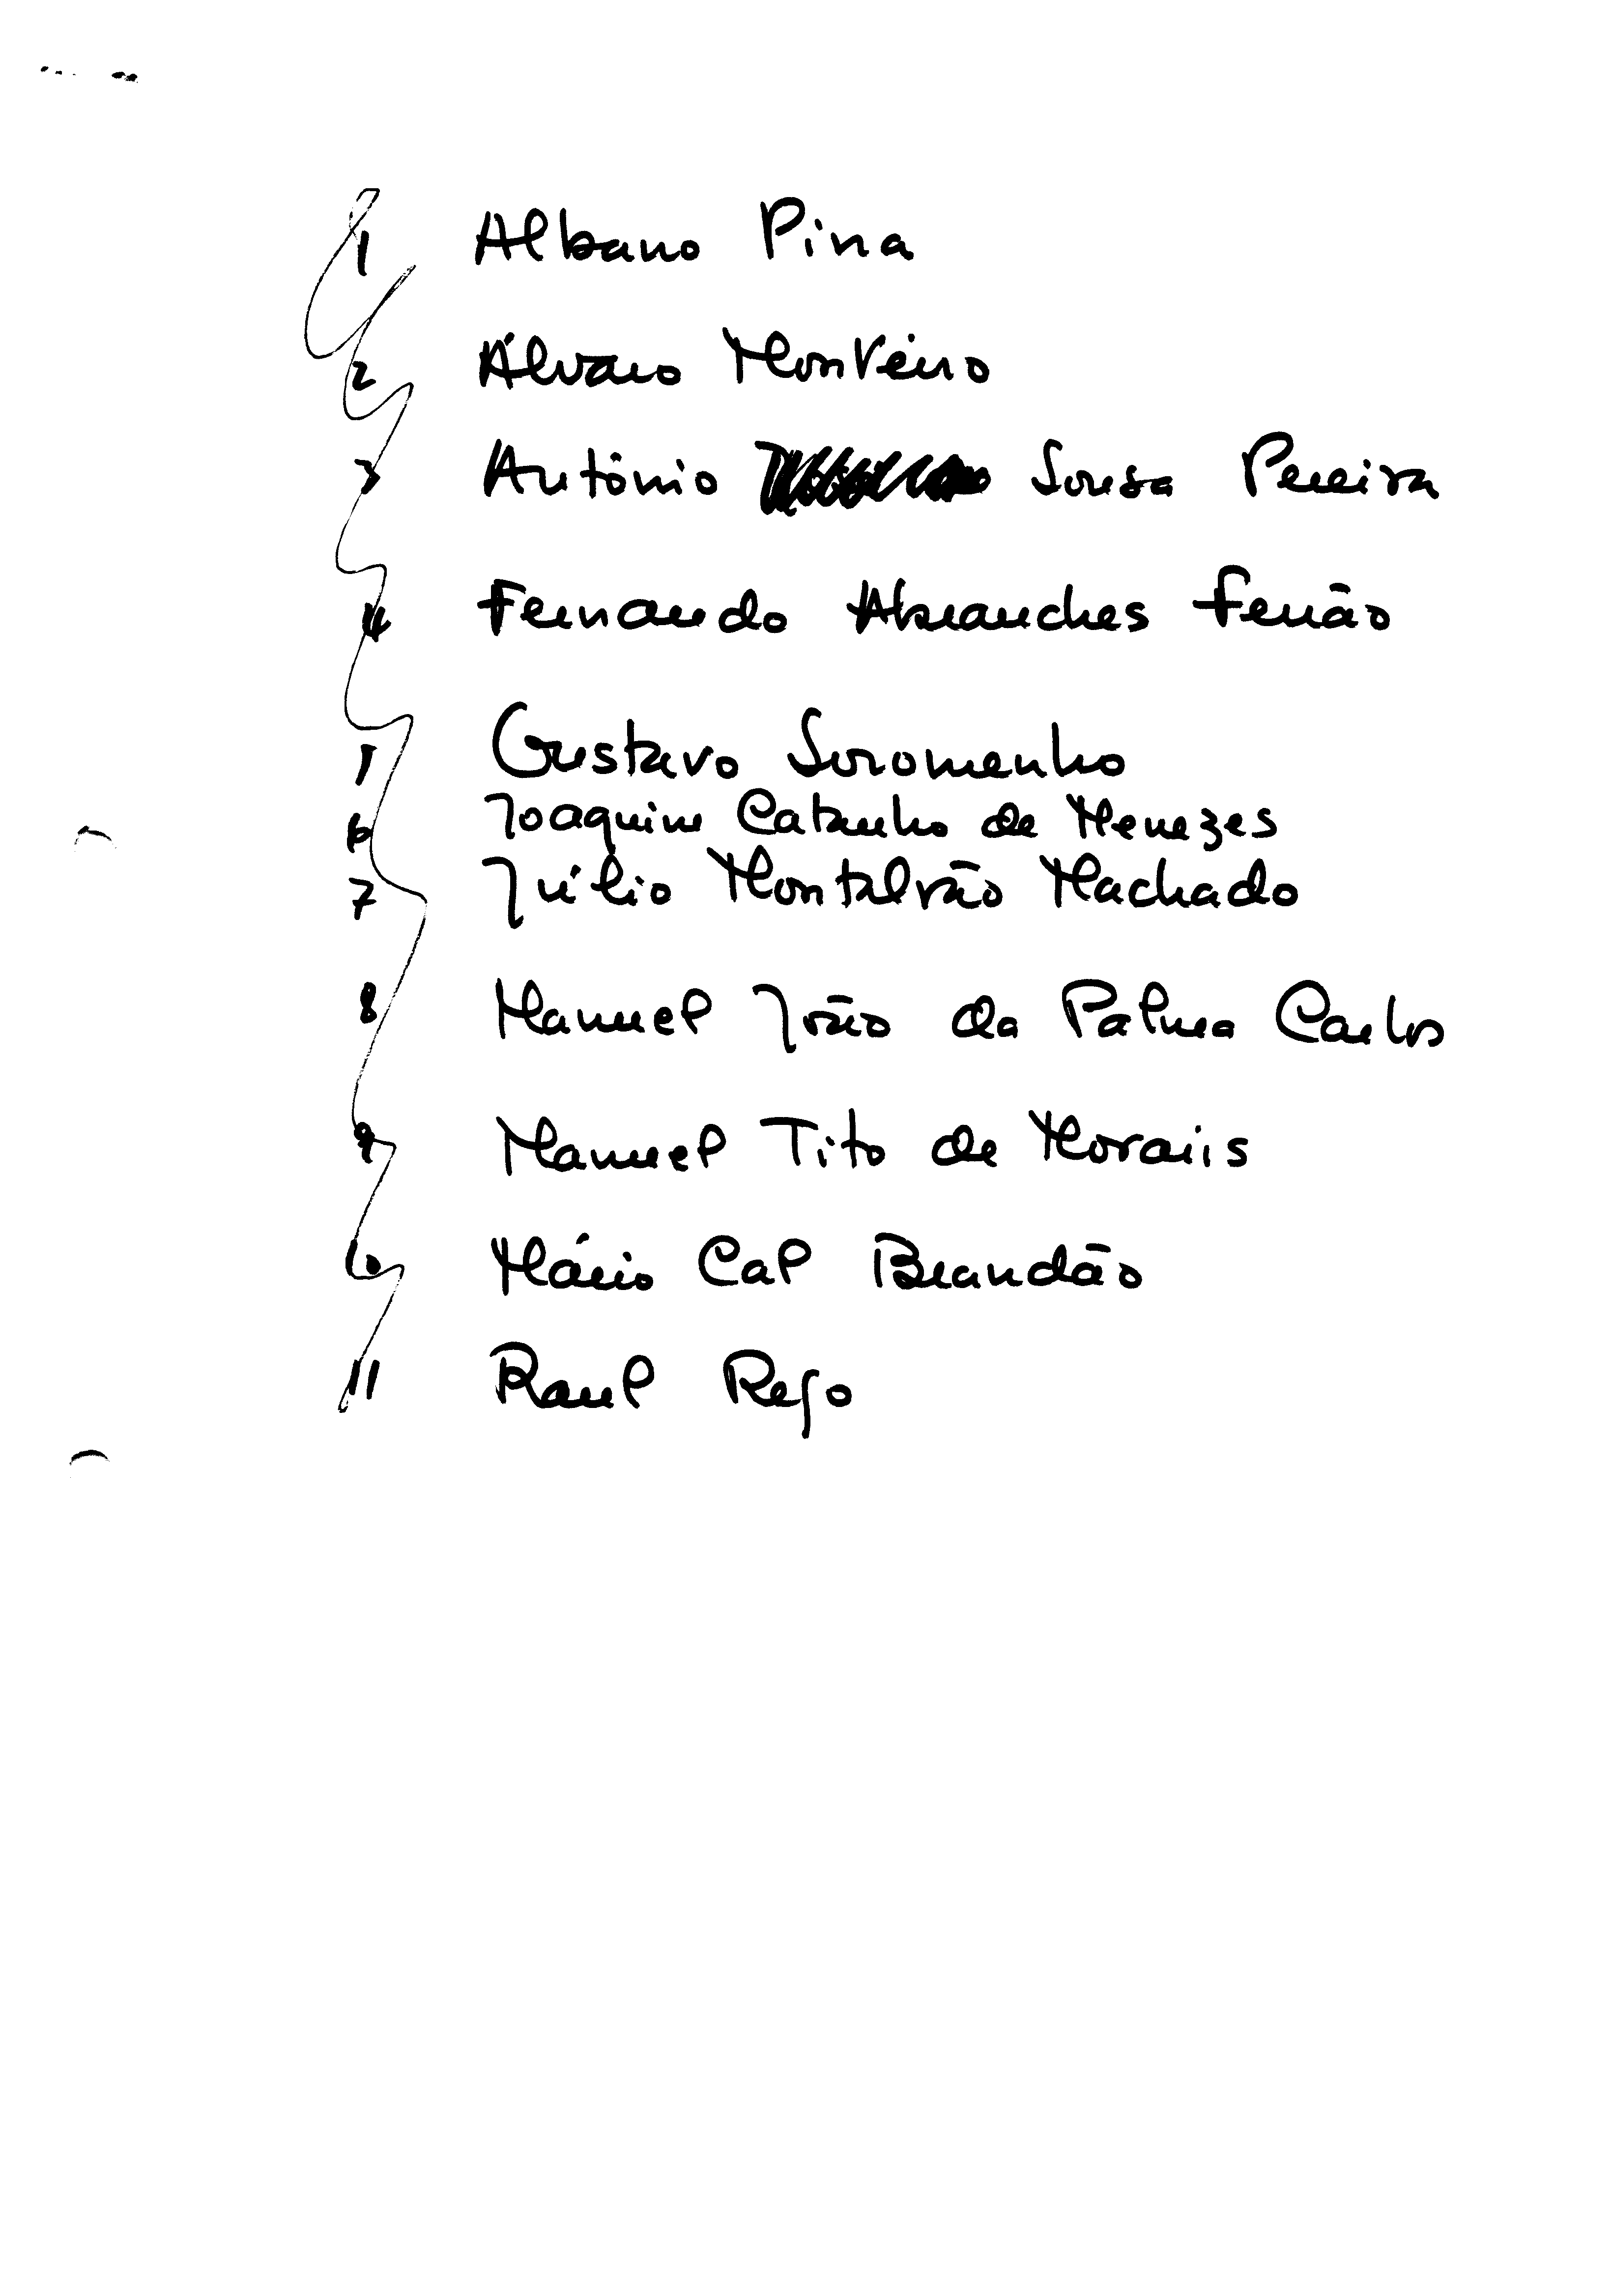 1 Albano Pina
2 Álvaro Monteiro
3 António Sousa Pereira
4 Fernando Abranches Ferrão
5 Gustavo Soromenho
6 Joaquim Catanho de Menezes
7 Júlio Montalvão Machado
8 Manuel João da Palma Carlos
9 Manuel Tito de Morais
10 Mário Cal Brandão
11 Raul Rego